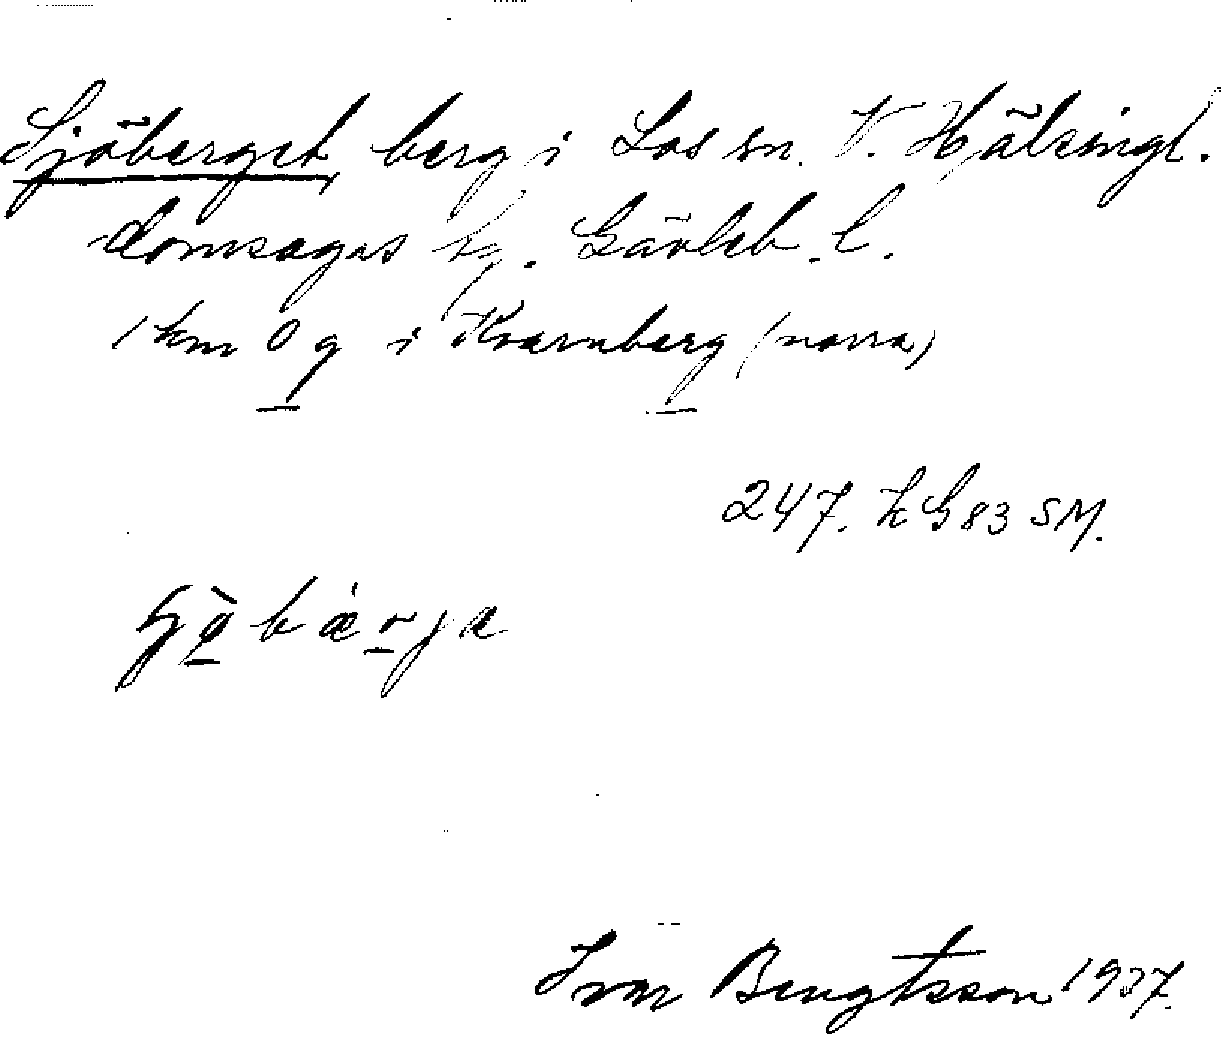 Sjöberget, berg i Los sn. V. Hälsingl.
domsagas tg. Gävleb. l.
1 km O g i Kvarnberg (norra)
247. h G 83 SM.
Ivar Bengtsson 1937.